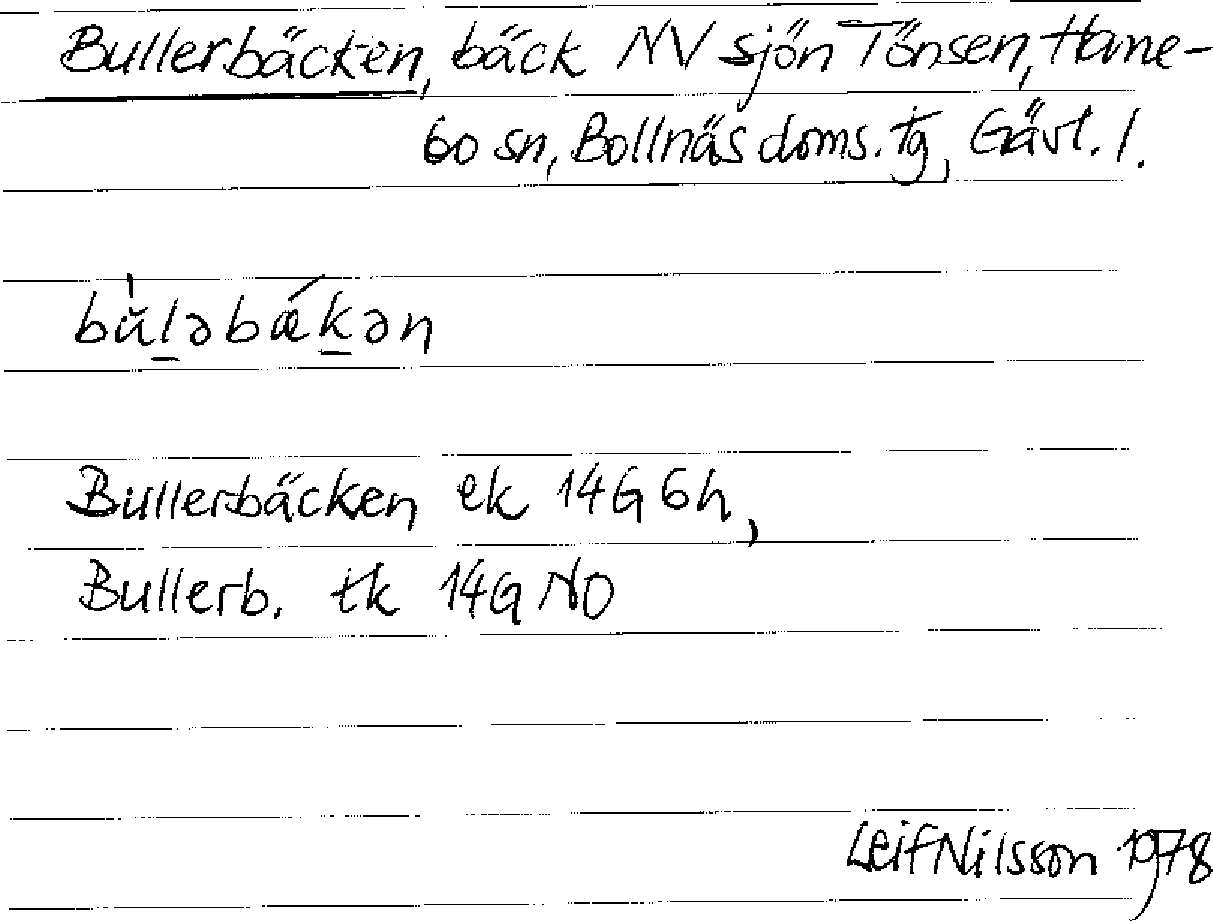 Bullerbäcken, bäck NV sjön Tönsen, Hane-
bo sn, Bollnäs doms. tg, Gävl. l.
bŭ̀l̠əbǽk̠ən
Bullerbäcken ek 14G 6h,
Bullerb. tk 14G NO
Leif Nilsson 1978